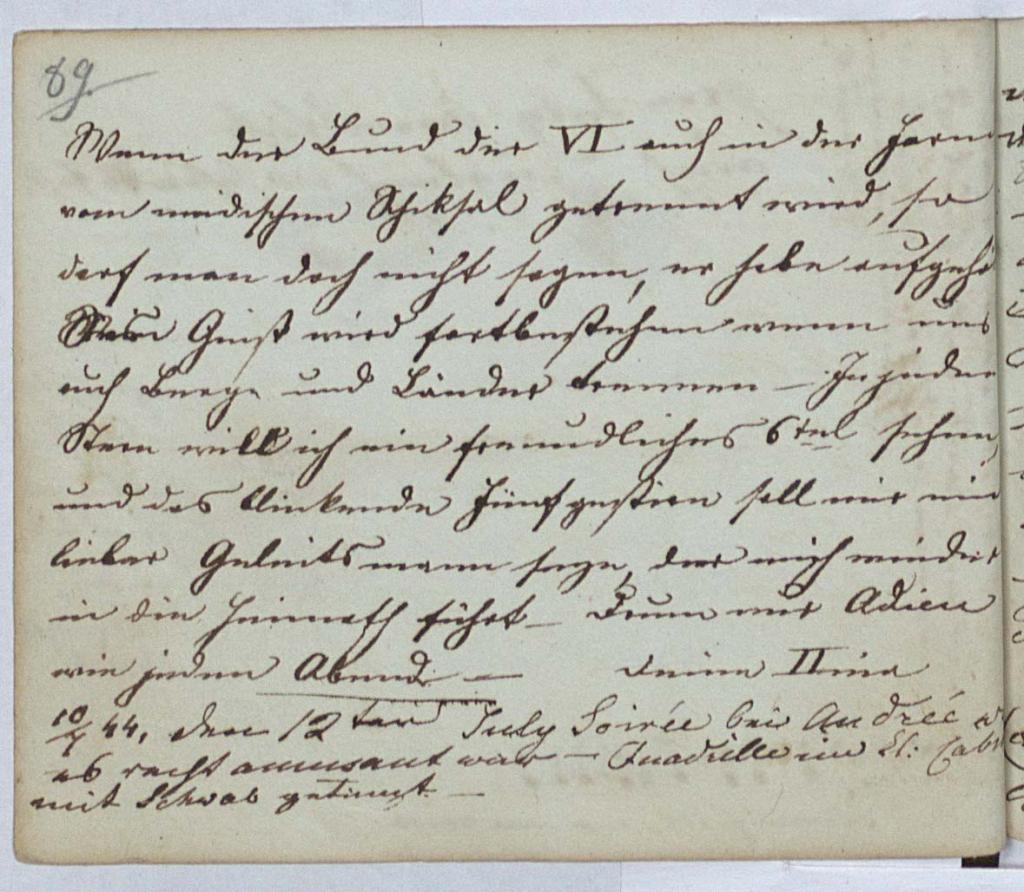 89.
Wenn der Bund der VI auch in der Form
vom neidischen Schiksal getrennt wird, so
darf man doch nicht sagen, er habe aufgehö
Sein Geist wird fortbestehen wenn uns
auch Berge und Länder trennen – In jeder
Stern will ich ein freundliches 6tel sehen,
und das blinkende Fünfgestirn soll mir ein
lieber Geleitsmann seyn, der mich wieder
in die Heimath führt – Drum nur Adieu
wie jeden Abend – Deine IIine
10/7 44. den 12ten July Soirée bei Andreé w
es recht amusant war – Quadrille im Cl: Cab
mit Schwab getanzt. –